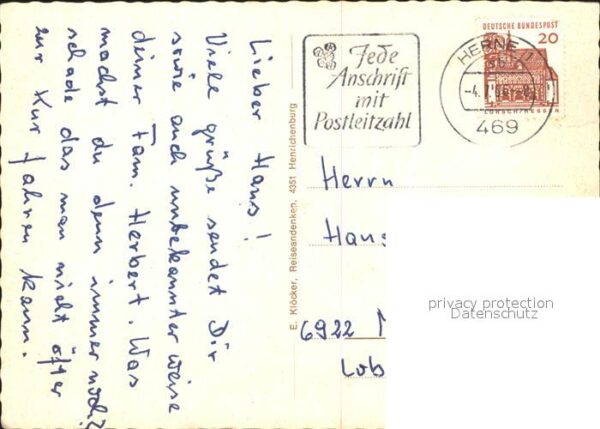 Lieber Hans!
Viele grüße sendet Dir
sowie auch unbekannter weise
deiner Fam. Herbert. Was
machst du denn immer noch?
schade das man nicht öfter
zur Kur fahren kann.
E. Klöcker, Reiseandenken, 4351 Henrichenburg
Jede
Anschrift
mit
Postleitzahl
HERNE
469
DEUTSCHE BUNDESPOST
20
Herrn
Hans
6922
Lob
privacy protection
Datenschutz